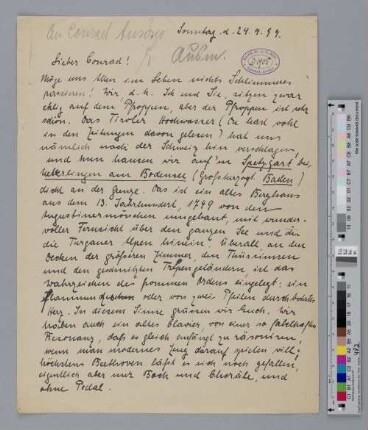 An Conrad Ansorge
Sonntag, d. 24. 9. 99.
Lieber Conrad!
Möge uns allen im Leben nichts Schlimmeres
passieren! Wir d. h. Ich und Sie, sitzen zwar
auf dem Pfropfen, aber der Pfropfen ist sehr
schön. Das Tiroler Hochwasser (Du hast wohl
in den Zeitungen davon gelesen) hat uns
nämlich nach der Schweiz hin verschlagen,
und nun hausen wir auf'm Spetzgart bei
Ueberlingen am Bodensee (Großherzogt. Baden)
dicht an der Grenze. Das ist ein altes Berghaus
aus dem 13. Jahrhundert, 1749 von den
Augustinermönchen umgebaut, mit wunder-
voller Fernsicht über den ganzen See und bis
die Turgauer Alpen hinein. Überall, an den
Decken der größeren Zimmer, den Türrinnen
und den gedrechselten Treppengeländern, ist das
Wahrzeichen des frommen Ordens eingelegt: ein
flammendurchbrochenes oder von zwei Pfeilen durchbohrtes
Herz. In diesem Sinne grüßen wir Euch. Wir
haben auch ein altes Clavier, von einer so fabelhaften
Resonanz, daß es gleich anfängt zu räsonniren,
wenn man modernes Zeug darauf spielen will;
höchstens Beethoven läßt es sich noch gefallen,
eigentlich aber nur Bach und Choräle, und
ohne Pedal.